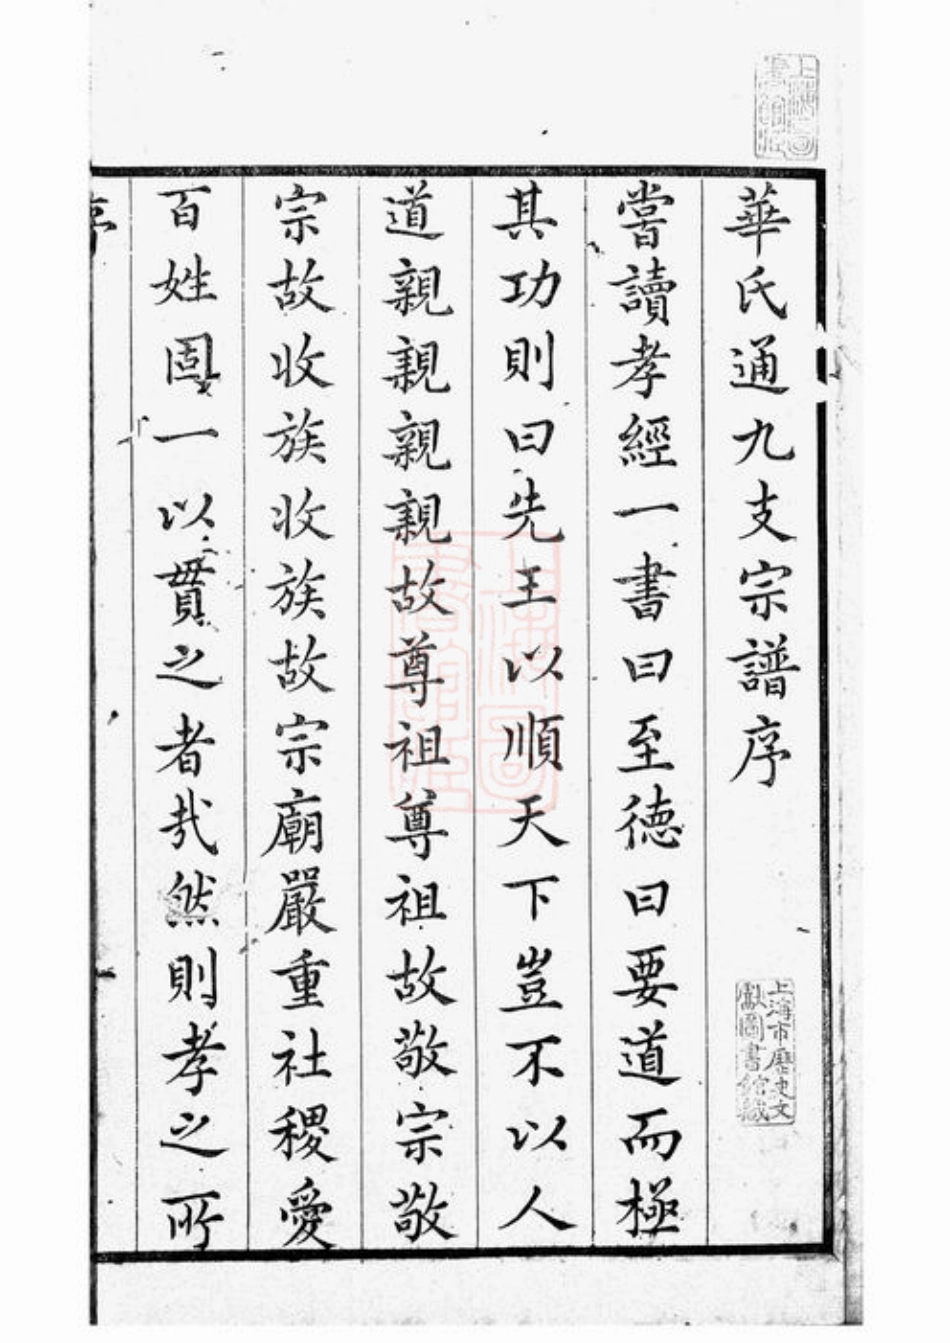 華氏通九支宗譜序
嘗讀孝經一書曰至德曰要道而極
其功則曰先王以順天下豈不以人
道親親親親故尊祖尊祖故敬宗敬
宗故收族收族故宗廟嚴重社稷愛
百姓固一以貫之者哉然則孝之所
序
上海圖書館藏
上海市歷史文獻圖書館藏
上海圖書館藏